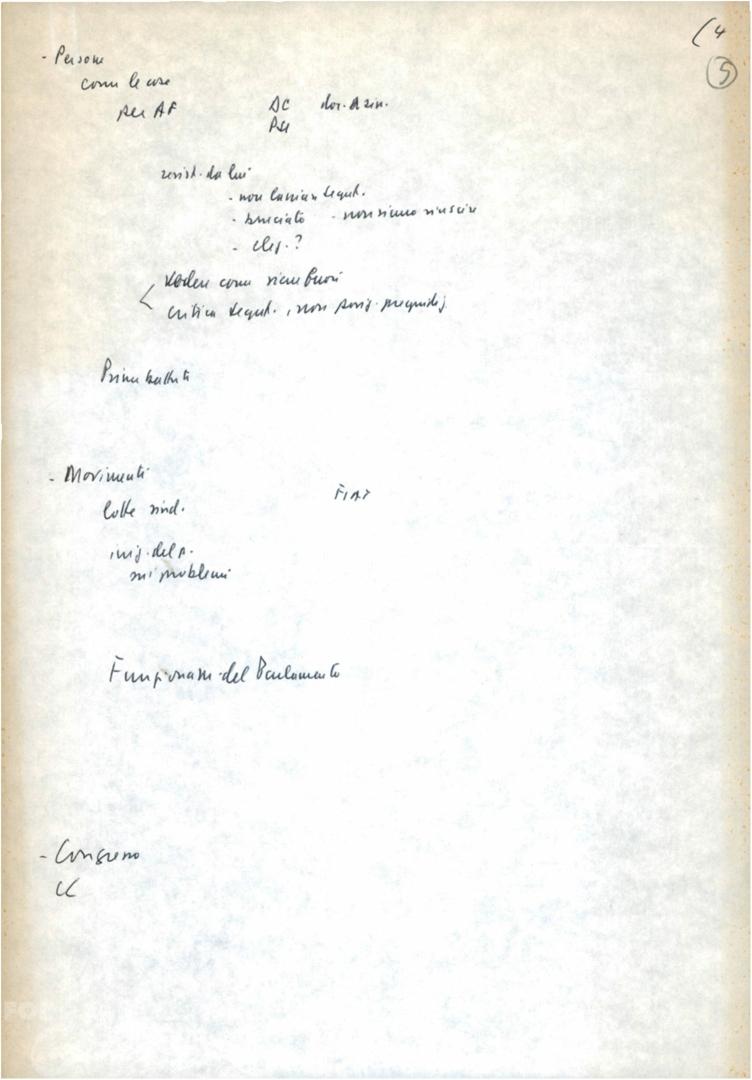 (4
5
- Persone
come le cose
per AF DC dor.
PSI
resist. da lui
- non lascian segret.
- bruciato - non siamo riusciti
- eleg. ?
vedere come viene fuori
critica segret., non posiz. pregiudiz.
Prime battute
- Movimenti
lotte sind. FIAT
iniz. del p.
sui problemi
Funzionam. del Parlamento
- Congresso
CC